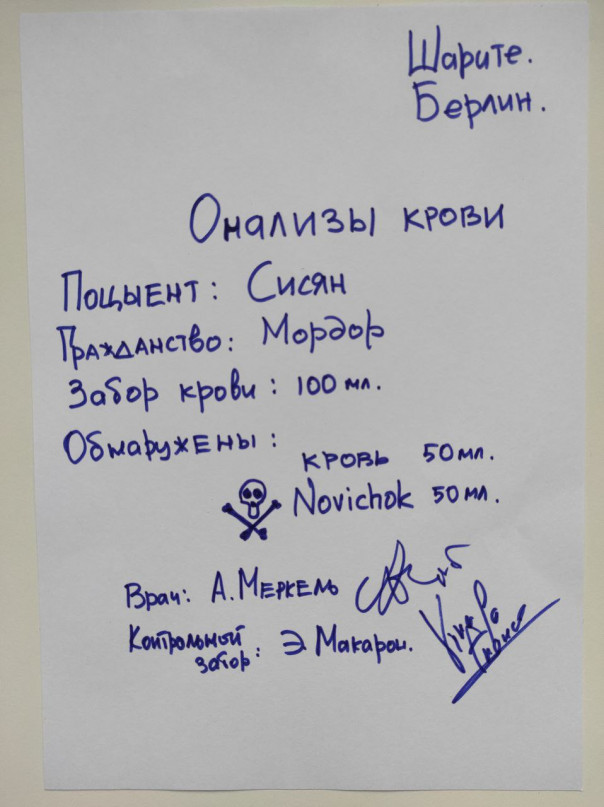 Шарите.
Берлин.
Онализы крови
Поцыент: Сисян
Гражданство: Мордор
Забор крови: 100 мл.
Обнаружены:
кровь 50 мл.
Novichok 50 мл.
Врач: А. Меркель
Контрольный забор: Э Макарон.